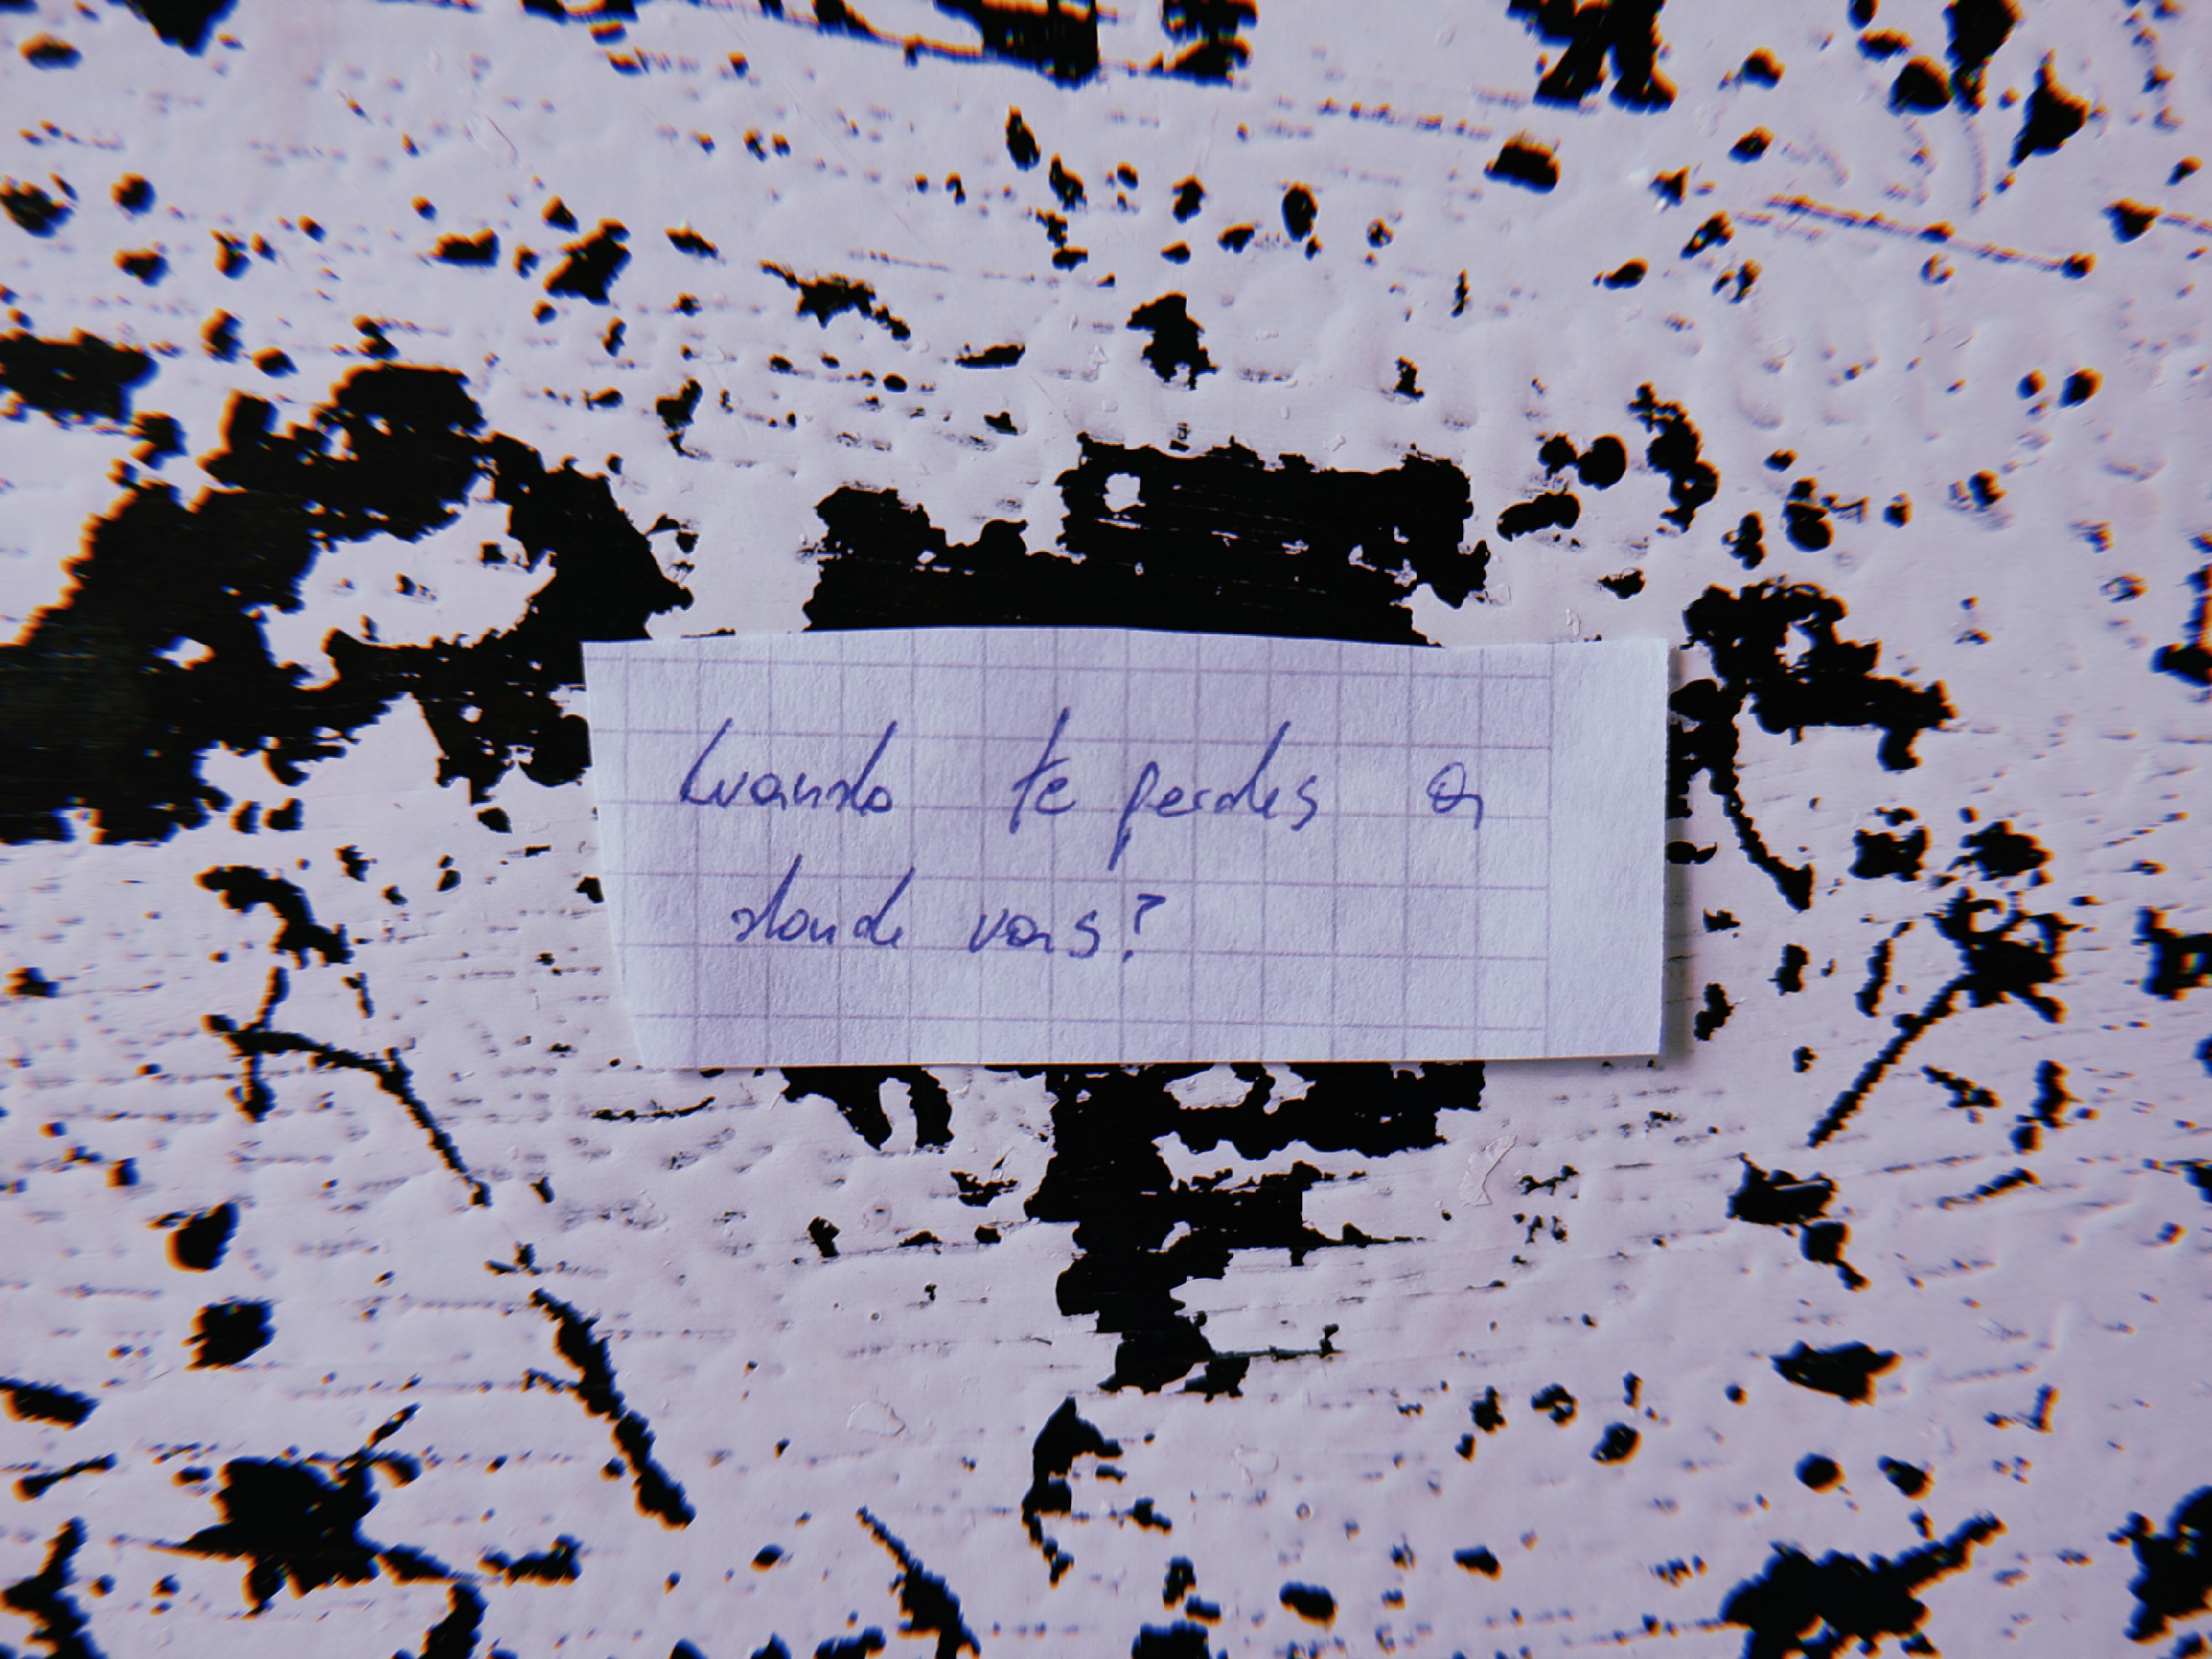 Cuando te perdes a
donde vas?